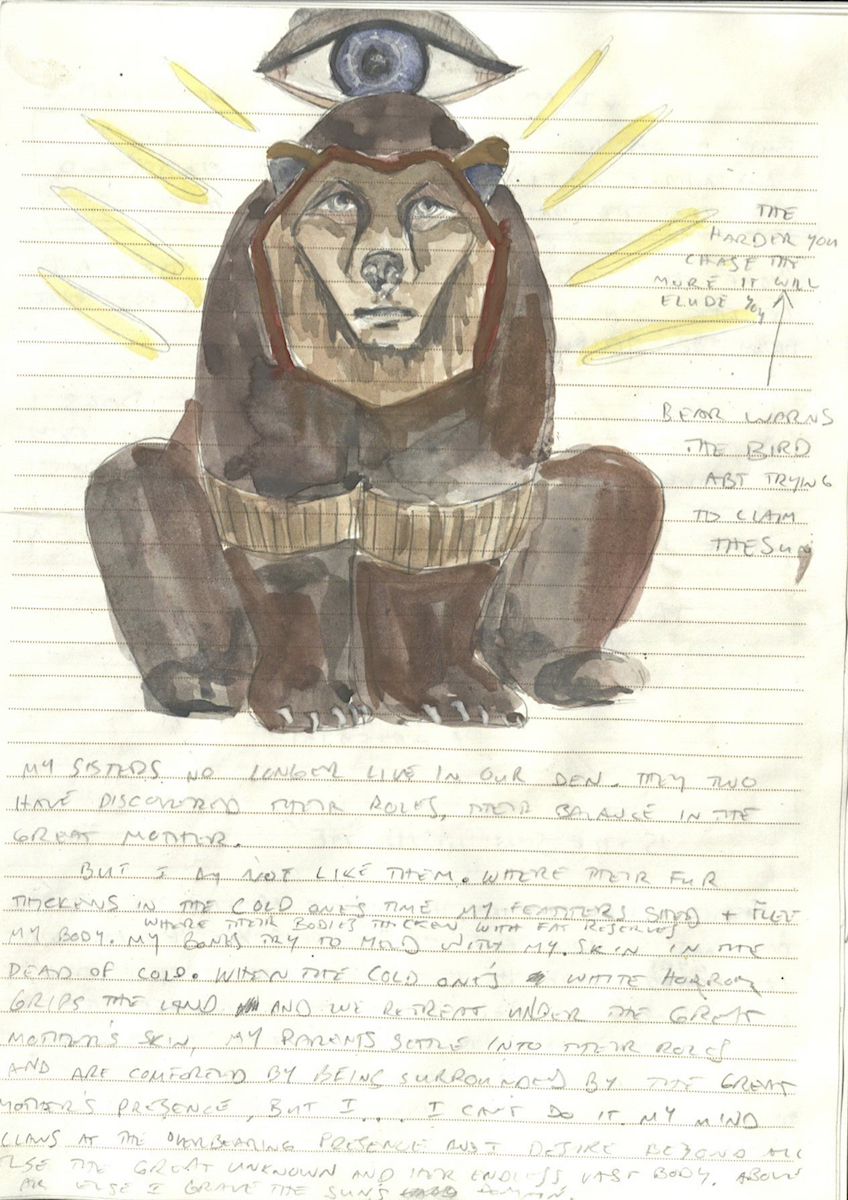 THE
HARDER YOU
CHASE THE
MORE IT WILL
ELUDE YOU
BEAR WARNS
THE BIRD
ABT TRYING
TO CLAIM
THE SUN
MY SISTERS NO LONGER LIVE IN OUR DEN. THEY TWO
HAVE DISCOVERED THEIR ROLES, THEIR BALANCE IN THE
GREAT MOTHER.
BUT I AM NOT LIKE THEM. WHERE THEIR FUR
THICKENS IN THE COLD ONE'S TIME MY FEATHERS SHED + FLEE
WHERE THEIR BODIES THICKEN WITH FAT RESERVES
MY BODY. MY BONES TRY TO MELD WITH MY SKIN IN THE
DEAD OF COLD. WHEN THE COLD ONE'S WHITE HORROR
GRIPS THE LAND AND WE RETREAT UNDER THE GREAT
MOTHER'S SKIN, MY PARENTS SETTLE INTO THEIR ROLES
AND ARE COMFORTED BY BEING SURROUNDED BY THE GREAT
MOTHER'S PRESENCE, BUT I... I CAN'T DO IT. MY MIND
CLAWS AT THE OVERBEARING PRESENCE AND I DESIRE BEYOND ALL
ELSE THE GREAT UNKNOWN AND HER ENDLESS VAST BODY. ABOVE
ALL ELSE I CRAVE THE SUN'S DOMAIN.